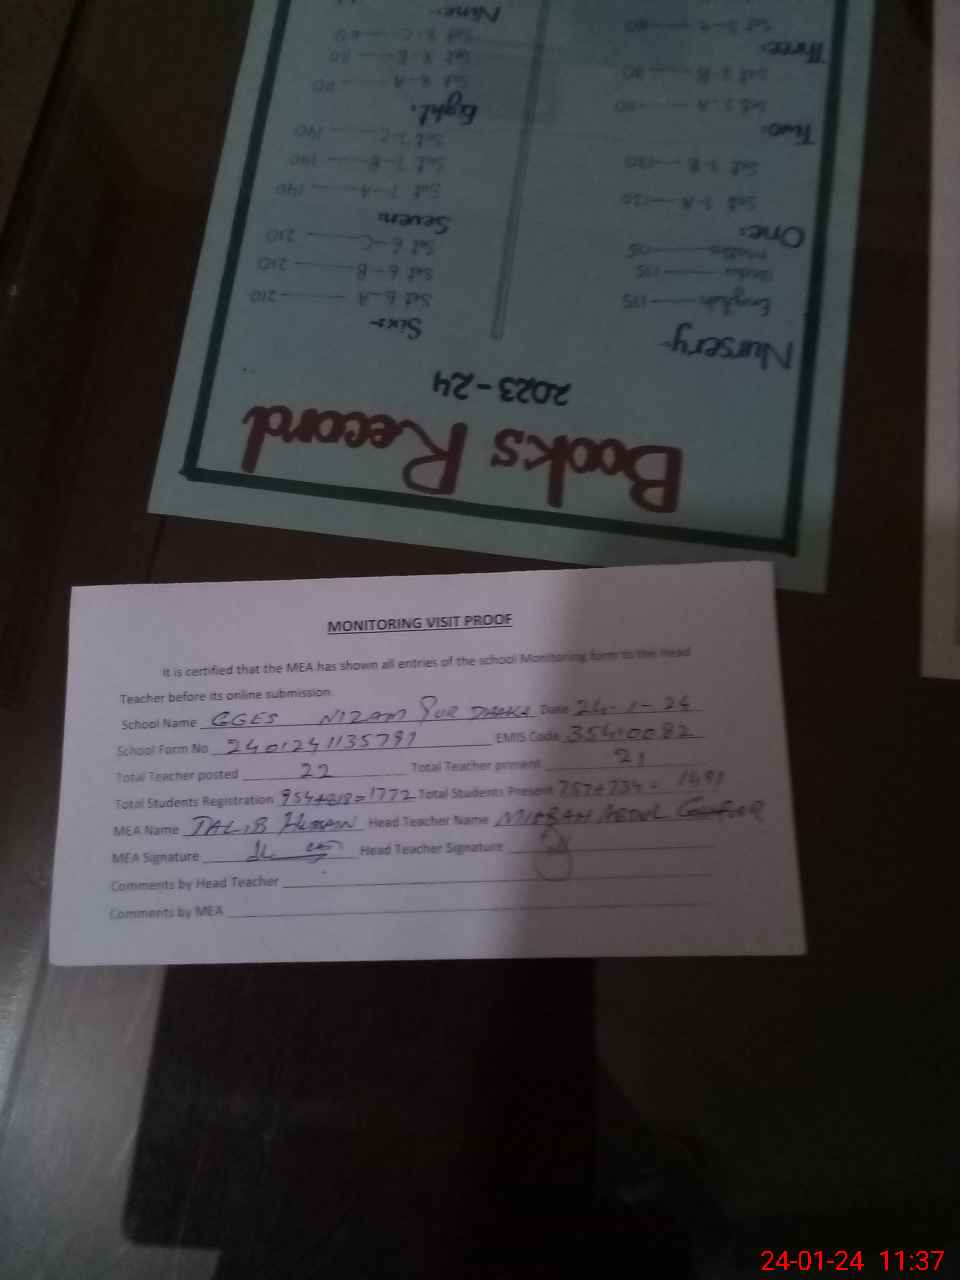 Books Record
2023-24
Nursery-
English 175
Urdu 175
Maths 175
One:
Set 1-A 130
Set 1-B 130
Two:
Set 2-A 110
Set 2-B 110
Three:
Six:-
Set 6-A 210
Set 6-B 210
Set 6-C 210
Seven:
Set 7-A 140
Set 7-B 140
Set 7-C 140
Eight:
Set 8-A 80
Set 8-B 80
Set 8-C 80
Nine:
MONITORING VISIT PROOF
It is certified that the MEA has shown all entries of the school Monitoring form to the Head
Teacher before its online submission.
School Name GGES NIZAM PUR DHAKA Date 24-1-24
School Form No 2401241135791 EMIS Code 35410082
Total Teacher posted 22 Total Teacher present 21
Total Students Registration 954+818=1772 Total Students Present 757+734=1491
MEA Name TALIB Head Teacher Name MISBAH ABDUL GHAFOOR
MEA Signature Head Teacher Signature
Comments by Head Teacher
Comments by MEA
24-01-24 11:37